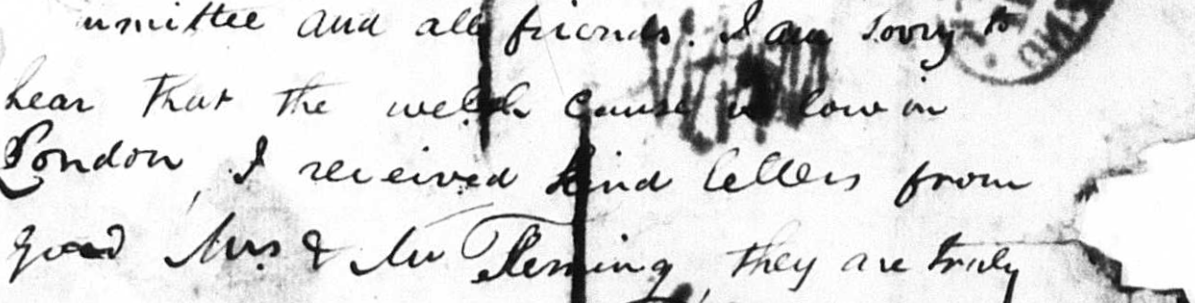 ummittee and all friends. I am sorry to
hear that the welsh cause is low in
London, I received kind letters from
good Mrs & Mr Fleming, they are truly